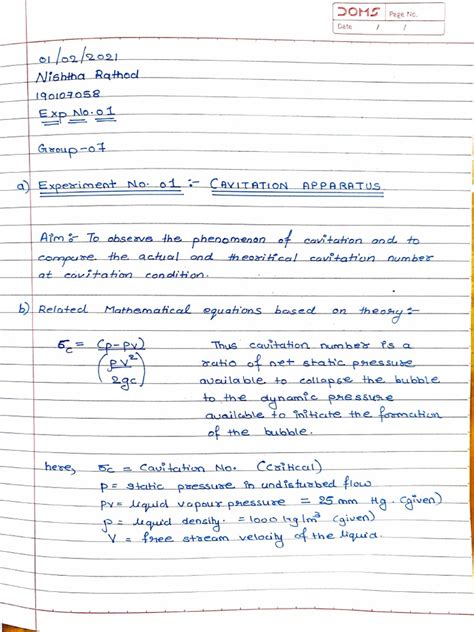 DOMS Page No.
Date / /
01/02/2021
Nishtha Rathod
190107058
Exp No. 01
Group-07
a) Experiment No. 01 :- CAVITATION APPARATUS
Aim :- To observe the phenomenon of cavitation and to
compare the actual and theoritical cavitation number
at cavitation condition.
b) Related Mathematical equations based on theory :-
σc = (p-pv) / (ρv²/2gc)
Thus cavitation number is a
ratio of net static pressure
available to collapse the bubble
to the dynamic pressure
available to initiate the formation
of the bubble.
here, σc = Cavitation No. (Critical)
p = static pressure in undisturbed flow
pv = liquid vapour pressure = 25 mm Hg. (given)
ρ = liquid density. = 1000 kg/m³ (given)
V = free stream velocity of the liquid.